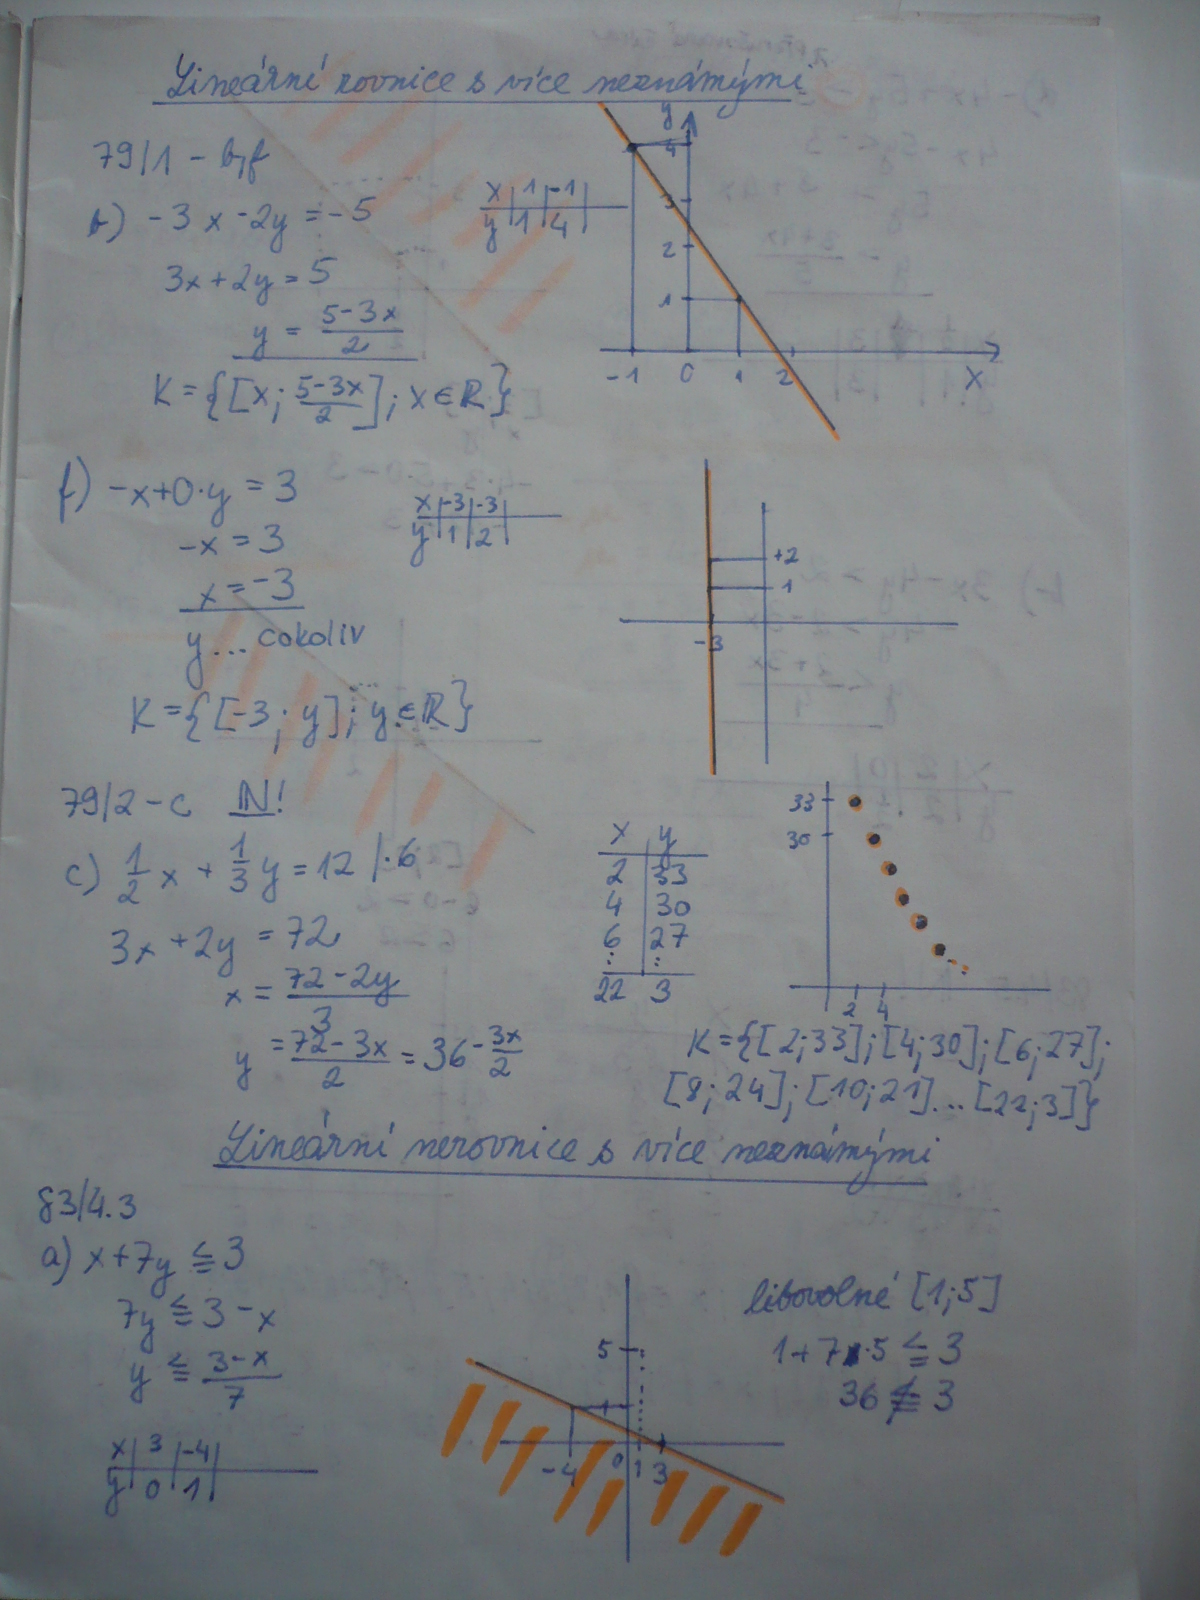 Lineární rovnice s více neznámými
79/1 - b,f
b) -3x -2y = -5
3x + 2y = 5
y = (5-3x)/2
K = {[x; (5-3x)/2]; x ∈ R}
x | 1 | -1 |
y | 1 | 4 |
y
4
3
2
1
-1 0 1 2 x
f) -x+0·y = 3
-x = 3
x = -3
y... cokoliv
K = {[-3; y]; y ∈ R}
x | -3 | -3 |
y | 1 | 2 |
+2
1
-3
79/2 - c N!
c) 1/2 x + 1/3 y = 12 /·6
3x + 2y = 72
x = (72 - 2y)/3
y = (72 - 3x)/2 = 36 - 3x/2
x | y
2 | 33
4 | 30
6 | 27
: | :
22 | 3
33
30
2 4
K = {[2;33]; [4;30]; [6;27];
[8;24]; [10;21]... [22;3]}
Lineární nerovnice s více neznámými
83/4.3
a) x + 7y ≦ 3
7y ≦ 3 - x
y ≦ (3-x)/7
x | 3 | -4 |
y | 0 | 1 |
5
1
-4 0 1 3
libovolné [1;5]
1 + 7·5 ≦ 3
36 ≦̸ 3